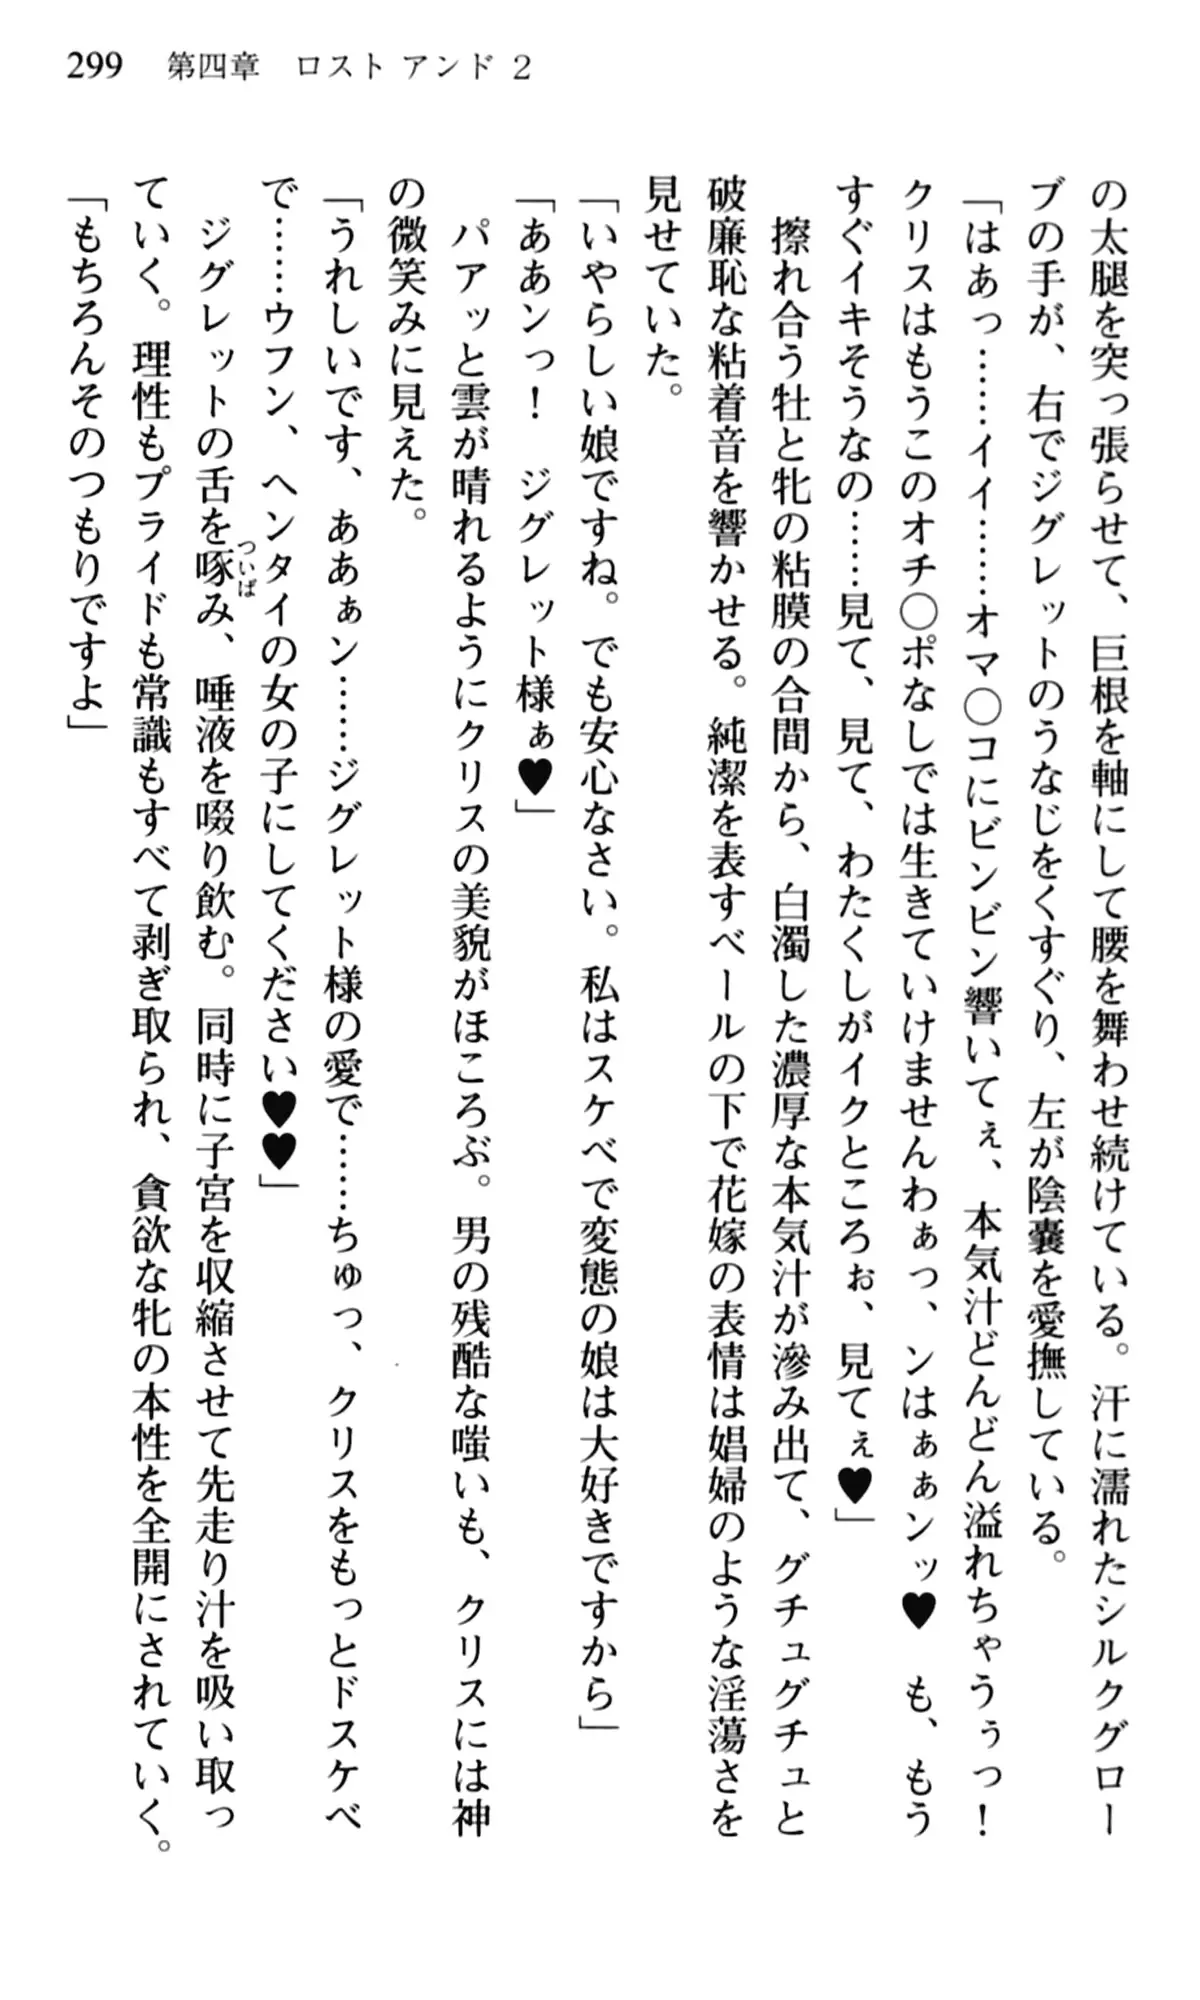 299 第四章 ロスト アンド 2
の太腿を突っ張らせて、巨根を軸にして腰を舞わせ続けている。汗に濡れたシルクグロー
ブの手が、右でジグレットのうなじをくすぐり、左が陰嚢を愛撫している。
「はあっ……イイ……オマ◯コにビンビン響いてぇ、本気汁どんどん溢れちゃうぅっ！
クリスはもうこのオチ◯ポなしでは生きていけませんわぁっ、ンはぁぁンッ♥　も、もう
すぐイキそうなの……見て、見て、わたくしがイクところぉ、見てぇ♥」
擦れ合う牡と牝の粘膜の合間から、白濁した濃厚な本気汁が滲み出て、グチュグチュと
破廉恥な粘着音を響かせる。純潔を表すベールの下で花嫁の表情は娼婦のような淫蕩さを
見せていた。
「いやらしい娘ですね。でも安心なさい。私はスケベで変態の娘は大好きですから」
「ああンっ！　ジグレット様ぁ♥」
パアッと雲が晴れるようにクリスの美貌がほころぶ。男の残酷な嗤いも、クリスには神
の微笑みに見えた。
「うれしいです、ああぁン……ジグレット様の愛で……ちゅっ、クリスをもっとドスケベ
で……ウフン、ヘンタイの女の子にしてください♥♥」
ジグレットの舌を啄み、唾液を啜り飲む。同時に子宮を収縮させて先走り汁を吸い取っ
ついば
ていく。理性もプライドも常識もすべて剥ぎ取られ、貪欲な牝の本性を全開にされていく。
「もちろんそのつもりですよ」